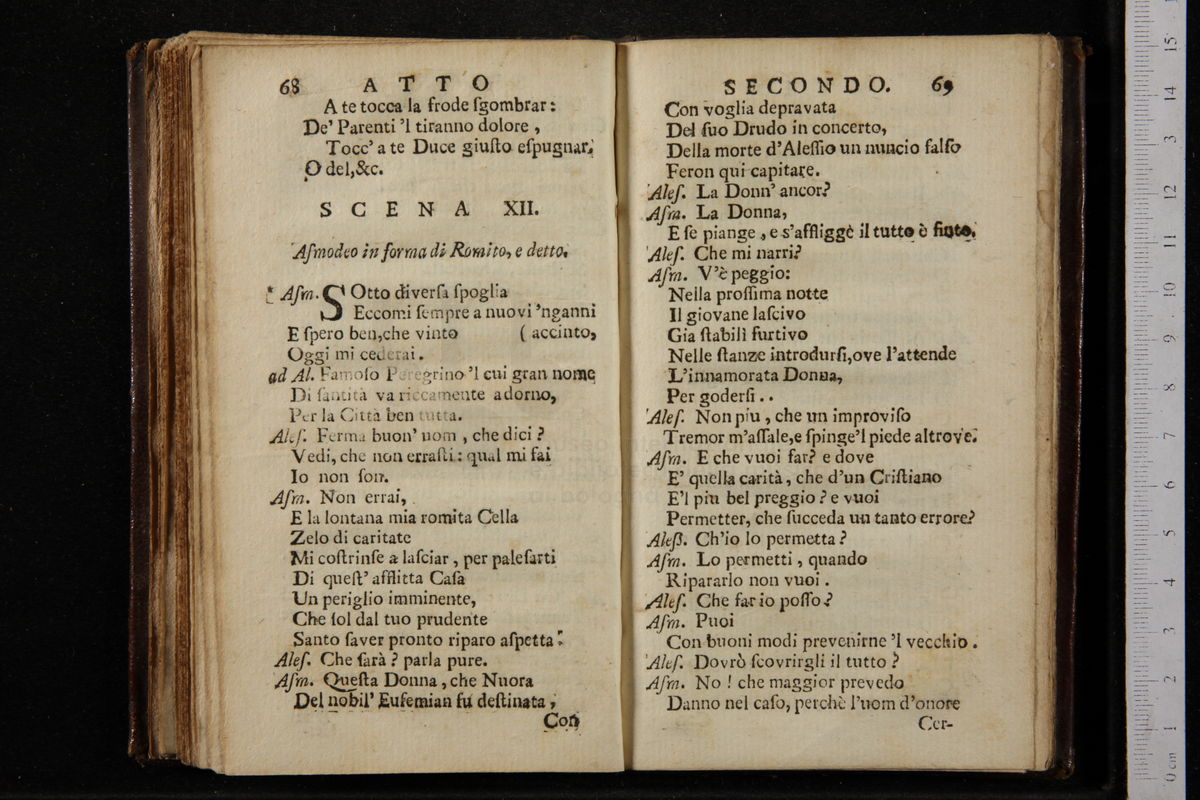 68 ATTO
A te tocca la frode ſgombrar:
De' Parenti 'l tiranno dolore,
Tocc' a te Duce giuſto eſpugnar.
O del,&c.
SCENA XII.
Aſmodeo in forma di Romito, e detto.
Aſm. SOtto diverſa ſpoglia
Eccomi ſempre a nuovi 'nganni
E ſpero ben,che vinto (accinto,
Oggi mi cederai.
ad Al. Famoſo Peregrino 'l cui gran nome
Di ſantità va riccamente adorno,
Per la Città ben tutta.
Aleſ. Ferma buon' uom, che dici?
Vedi, che non erraſti: qual mi fai
Io non ſon.
Aſm. Non errai,
E la lontana mia romita Cella
Zelo di caritate
Mi coſtrinſe a laſciar, per paleſarti
Di queſt' afflitta Caſa
Un periglio imminente,
Che ſol dal tuo prudente
Santo ſaver pronto riparo aſpetta.
Aleſ. Che ſarà? parla pure.
Aſm. Queſta Donna, che Nuora
Del nobil' Eufemian fu deſtinata,
Con
SECONDO. 69
Con voglia depravata
Del ſuo Drudo in concerto,
Della morte d'Aleſſio un nuncio falſo
Feron qui capitare.
Aleſ. La Donn' ancor?
Aſm. La Donna,
E ſe piange, e s'affliggè il tutto è finto.
Aleſ. Che mi narri?
Aſm. V'è peggio:
Nella proſſima notte
Il giovane laſcivo
Gia ſtabilì furtivo
Nelle ſtanze introdurſi,ove l'attende
L'innamorata Donna,
Per goderſi ..
Aleſ. Non piu, che un improviſo
Tremor m'aſſale,e ſpinge'l piede altrove.
Aſm. E che vuoi far? e dove
E' quella carità, che d'un Criſtiano
E'l piu bel preggio? e vuoi
Permetter, che ſucceda un tanto errore?
Aleß. Ch'io lo permetta?
Aſm. Lo permetti, quando
Ripararlo non vuoi.
Aleſ. Che far io poſſo?
Aſm. Puoi
Con buoni modi prevenirne 'l vecchio.
Aleſ. Dovrò ſcovrirgli il tutto?
Aſm. No! che maggior prevedo
Danno nel caſo, perchè l'uom d'onore
Cer-
0 cm 1 2 3 4 5 6 7 8 9 10 11 12 3 14 15